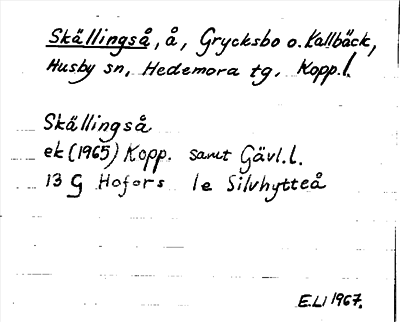 Skällingså, å, Grycksbo o. Kallbäck,
Husby sn, Hedemora tg, Kopp.l.
Skällingså
ek (1965) Kopp. samt Gävl.l.
13 G Hofors 1e Silvhytteå
E.Li 1967.